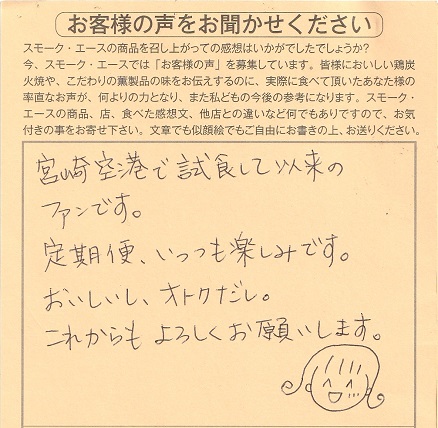 お客様の声をお聞かせください
スモーク・エースの商品を召し上がっての感想はいかがでしたでしょうか?
今、スモーク・エースでは「お客様の声」を募集しています。皆様においしい鶏炭
火焼や、こだわりの薫製品の味をお伝えするのに、実際に食べて頂いたあなた様の
率直なお声が、何よりの力となり、また私どもの今後の参考になります。スモーク・
エースの商品、店、食べた感想文、他店との違いなど何でもありですので、お気
付きの事をお寄せ下さい。文章でも似顔絵でもご自由にお書きの上、お送りください。
宮崎空港で試食して以来の
ファンです。
定期便、いっつも楽しみです。
おいしいし、オトクだし。
これからもよろしくお願いします。